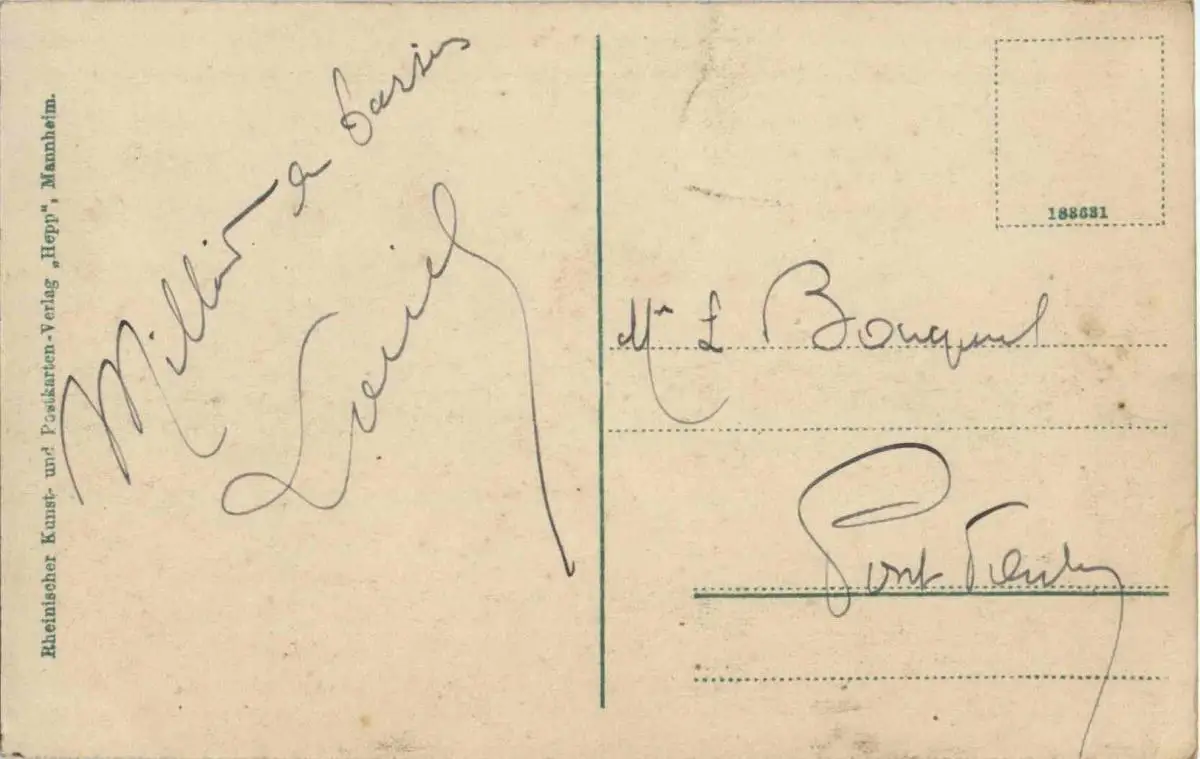 Rheinischer Kunst- und Postkarten-Verlag „Hepp", Mannheim.
Million de baisers
188681
Mr L Bouquet
Pont